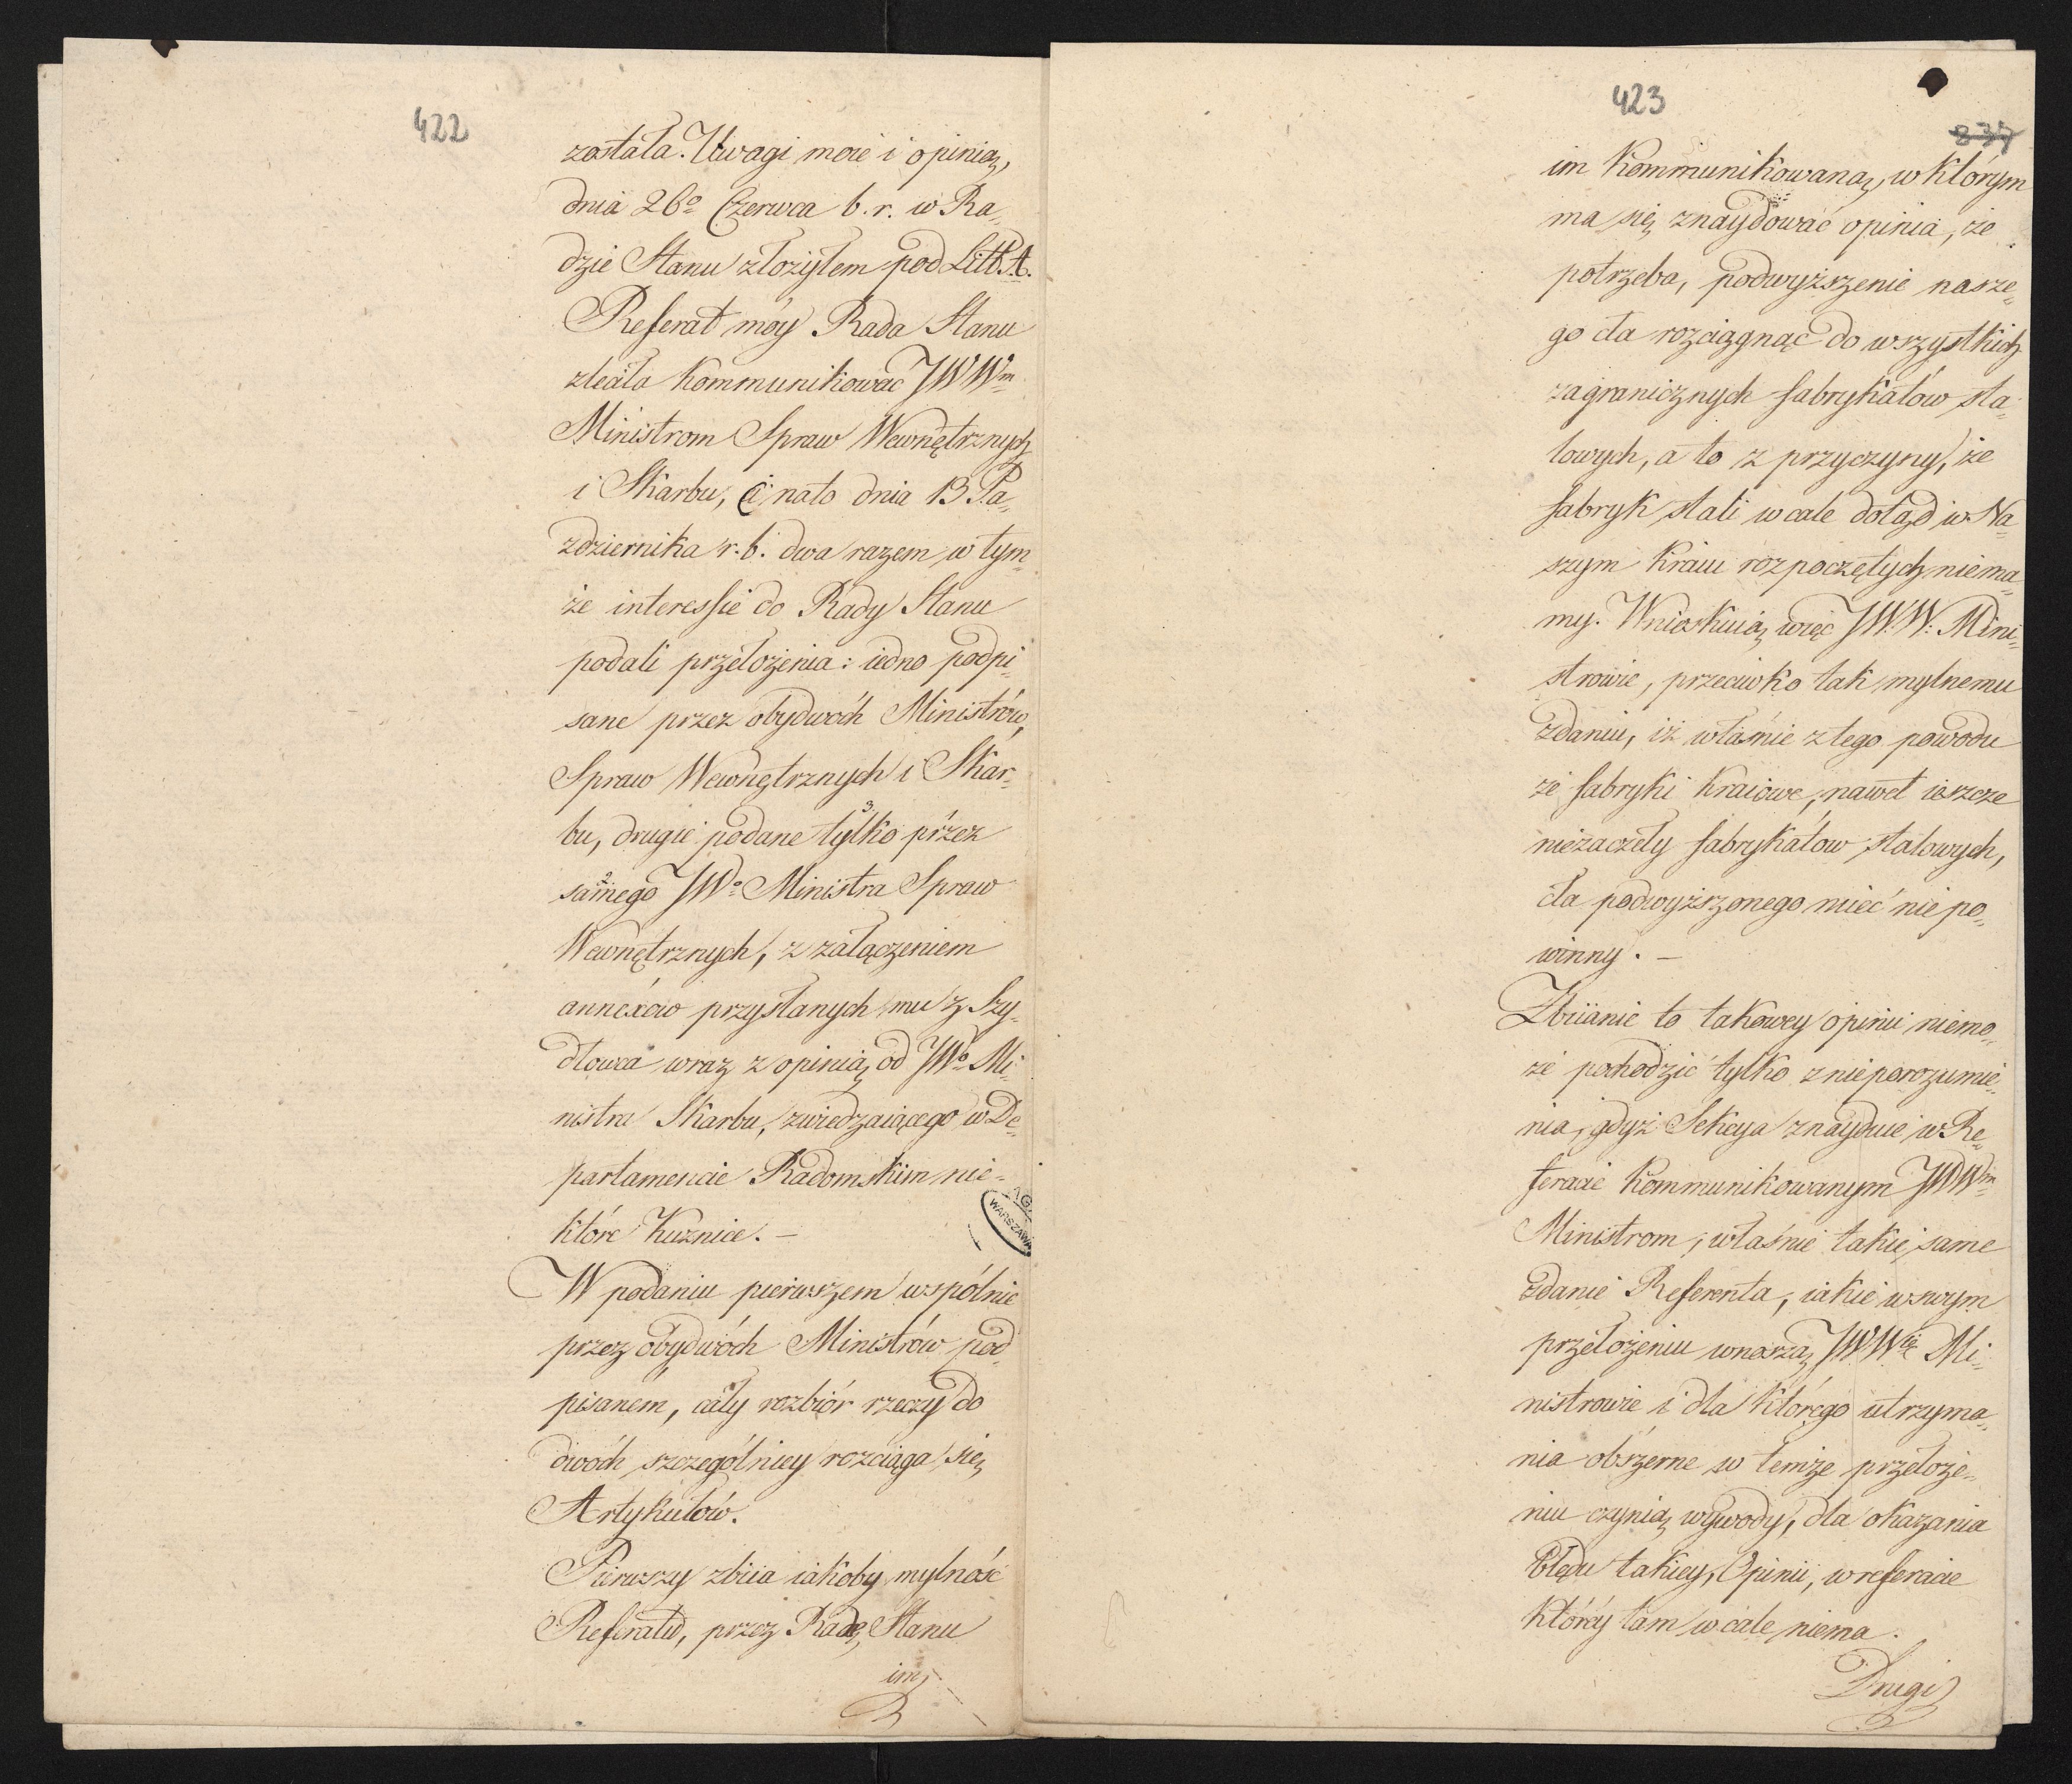 422
została. Uwagi moie i opinią,
dnia 26º Czerwca b. r. w Ra=
dzie Stanu złożyłem pod Litt. A.
Referat móy Rada Stanu
zleciła kommunikować JWWm
Ministrom Spraw Wewnętrznych
i Skarbu, Ci nato dnia 13 Pa=
zdziernika r. b. dwa razem w tym=
że interessie do Rady Stanu
podali przełożenia: iedno podpi=
sane przez obydwóch Ministrów,
Spraw Wewnętrznych i Skar=
bu, drugie podane tylko przez
samego JWº Ministra Spraw
Wewnętrznych, z załączeniem
annexów przysłanych mu z Szy=
dłowca wraz z opinią od JWº Mi=
nistra Skarbu, zwiedzaiącego w De=
partamencie Radomskim nie=
które Kuznice. —
W podaniu pierwszem wspólnie
przez obydwóch Ministrów pod=
pisanem, cały rozbiór rzeczy do
dwóch szczególniey rozciąga się
Artykułów.
Pierwszy zbiia iakoby mylność
Referatu, przez Radę Stanu
im
WARSZAWA
423
837
im Kommunikowaną, w którym
ma się znaydować opinia, że
potrzeba, podwyższenie nasze=
go cła rozciągnąć do wszystkich
zagranicznych fabrykatów sta=
lowych, a to z przyczyny, że
fabryk stali wcale dotąd w Na=
szym Kraiu rozpoczętych niema=
my. Wnioskuią więc JW.W. Mini=
strowie, przeciwko tak mylnemu
zdaniu, iż właśnie z tego powodu
że fabryki kraiowe, nawet ieszcze
niezaczęły fabrykatów stalowych,
cła podwyższonego mieć nie po=
winny. —
Zbiianie to takowey opinii niemo=
że pochodzić tylko z nieporozumie=
nia, gdyż Sekcya znayduie w Re=
feracie Kommunikowanym JWWm
Ministrom, właśnie takie same
zdanie Referenta, iakie w swym
przełożeniu wnoszą JWWie Mi=
nistrowie i dla którego utrzyma=
nia obszerne w temże przełoże=
niu czynią wywody, dla okazania
błędu takiey, Opinii, w referacie
któréy tam wcale niema.
Drugi